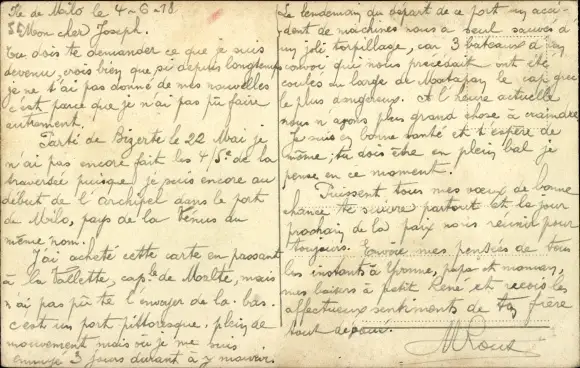 Ile de Milo le 4-6-18
Mon cher Joseph.
Tu dois te demander ce que je suis
devenu, crois bien que si depuis longtemps
je ne t'ai pas donné de mes nouvelles
c'est parce que je n'ai pas pu faire
autrement.
Parti de Bizerte le 22 Mai je
n'ai pas encore fait les 4/5e de la
traversée puisque je suis encore au
début de l'Archipel dans le port
de Milo, pays de la Vénus du
même nom.
J'ai acheté cette carte en passant
à la Vallette, cap.le de Malte, mais
n'ai pas pu te l'envoyer de là-bas.
c'est un port pittoresque, plein de
mouvement mais où je me suis
ennuyé 3 jours durant à y moisir.
Le lendemain du départ de ce port un acci-
dent de machines nous a seul sauvés d'
un joli torpillage, car 3 bateaux d'un
convoi qui nous précédait ont été
coulés au large de Matapan le cap que
le plus dangereux. A l'heure actuelle
nous n'avons plus grand chose à craindre
Je suis en bonne santé et t'espère de
même; tu dois être en plein bal je
pense en ce moment.
Puissent tous mes vœux de bonne
chance te suivre partout et le jour
prochain de la paix nous réunir pour
toujours. Envoie mes pensées de tous
les instants à Yvonne, papa et maman,
mes baisers à petit René, et reçois les
affectueux sentiments de ton frère
tout dévoué.